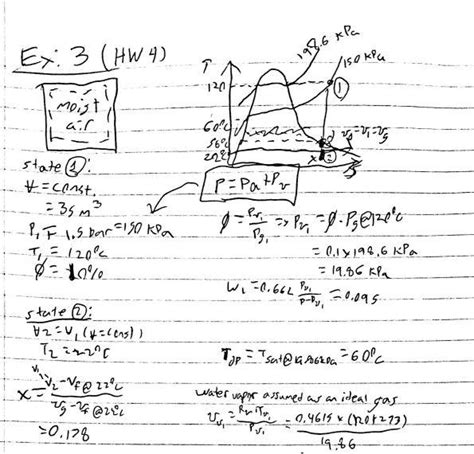 Ex: 3 (HW4)
moist
air
T
198.6 kPa
150 kPa
120
①
60°C
56°C
22°C
x
②
v₂=v₁=vg
P=Pa+Pv
state ①:
V=const.
=35 m³
P₁=1.5 bar=150 kPa
T₁=120°C
Ø=10%
Ø=Pv₁/Pg₁ => Pv₁=Ø·Pg@120°C
=0.1×198.6 kPa
=19.86 kPa
W₁=0.662 Pv₁/P-Pv₁=0.095
state ②:
V2=V₁ (V=cons)
T2=22°C
x=v₂-vf@22°C/vg-vf@22°C
v₁
=0.178
Tdp=Tsat@19.86kPa=60°C
water vapor assumed as an ideal gas
vv₁=RvTv₁/Pv₁=0.4615×(120+273)/19.86